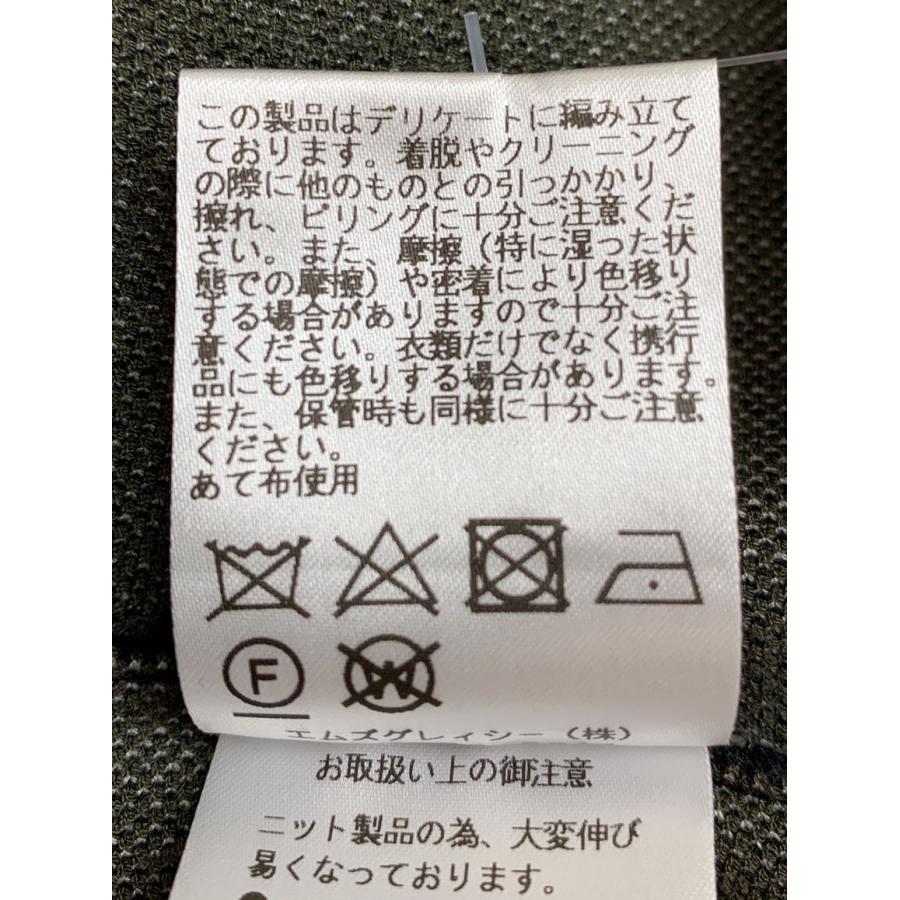 この製品はデリケートに編み立て
ております。着脱やクリーニング
の際に他のものとの引っかかり、
擦れ、ピリングに十分ご注意くだ
さい。また、摩擦(特に湿った状
態での摩擦)や密着により色移り
する場合がありますので十分ご注
意ください。衣類だけでなく携行
品にも色移りする場合があります。
また、保管時も同様に十分ご注意
ください。
あて布使用
F
W
エムズグレイシー(株)
お取扱い上の御注意
ニット製品の為、大変伸び
易くなっております。